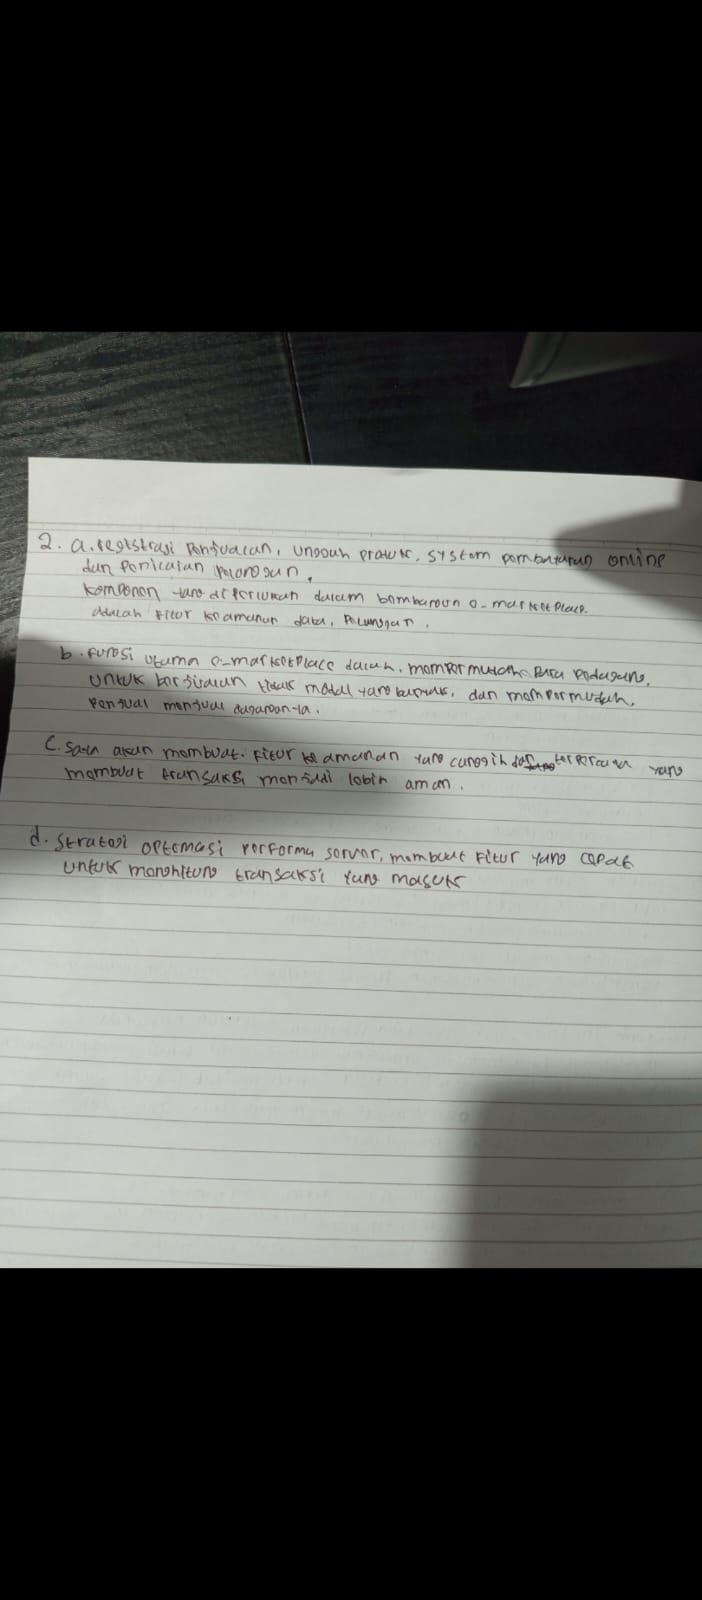 2. a. registrasi Penjualan, unggah produk, system pembayaran online
dan Penilaian Pelanggan.
Komponen yang di perlukan dalam pembangun e-marketplace.
adalah Fitur keamanan data, Pelanggan.
b. Fungsi utama e-marketplace dalah. mempermudah Para Pedagang,
untuk berjualan tidak modal yang banyak, dan mempermudah,
Penjual menjual dagangan-ya.
C. Saya akan membuat. Fitur ke amanan yang canggih dan terpercaya yang
membuat transaksi menjadi lebih aman.
d. Strategi optemasi performa server, membuat Fitur yang cepat
untuk menghitung transaksi yang masuk